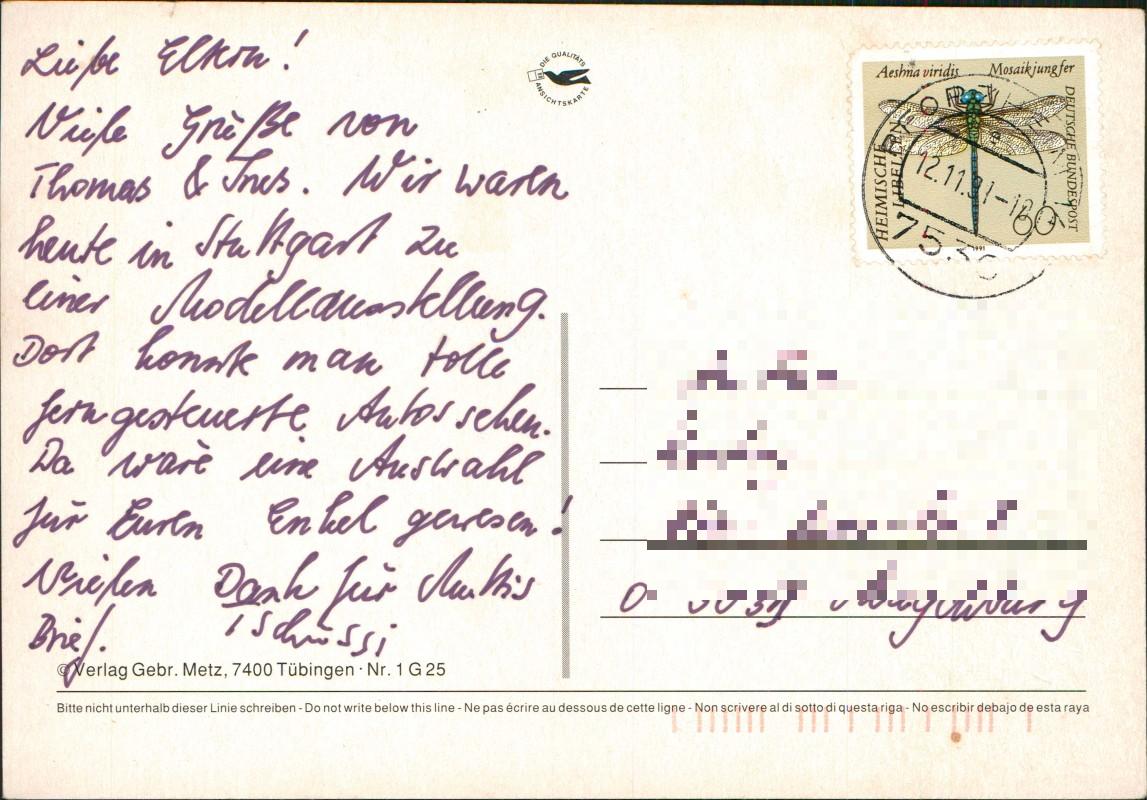 Liebe Eltern!
Viele Grüße von
Thomas & Ines. Wir waren
heute in Stuttgart zu
einer Modellausstellung.
Dort konnte man tolle
ferngesteuerte Autos sehen.
Da wäre eine Auswahl
für Euren Enkel gewesen!
Vielen Dank für Muttis
Brief.
Tschüssi
© Verlag Gebr. Metz, 7400 Tübingen · Nr. 1 G 25
Bitte nicht unterhalb dieser Linie schreiben - Do not write below this line - Ne pas écrire au dessous de cette ligne - Non scrivere al di sotto di questa riga - No escribir debajo de esta raya
DIE QUALITÄTS
ANSICHTSKARTE
Aeshna viridis Mosaikjungfer
HEIMISCHE
LIBELLEN
DEUTSCHE BUNDESPOST
60
1991
PFORZHEIM
12.11.91-18
7530